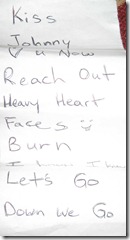 Kiss
Johnny
U Now
Reach Out
Heavy Heart
Faces
Burn
Let's Go
Down we Go